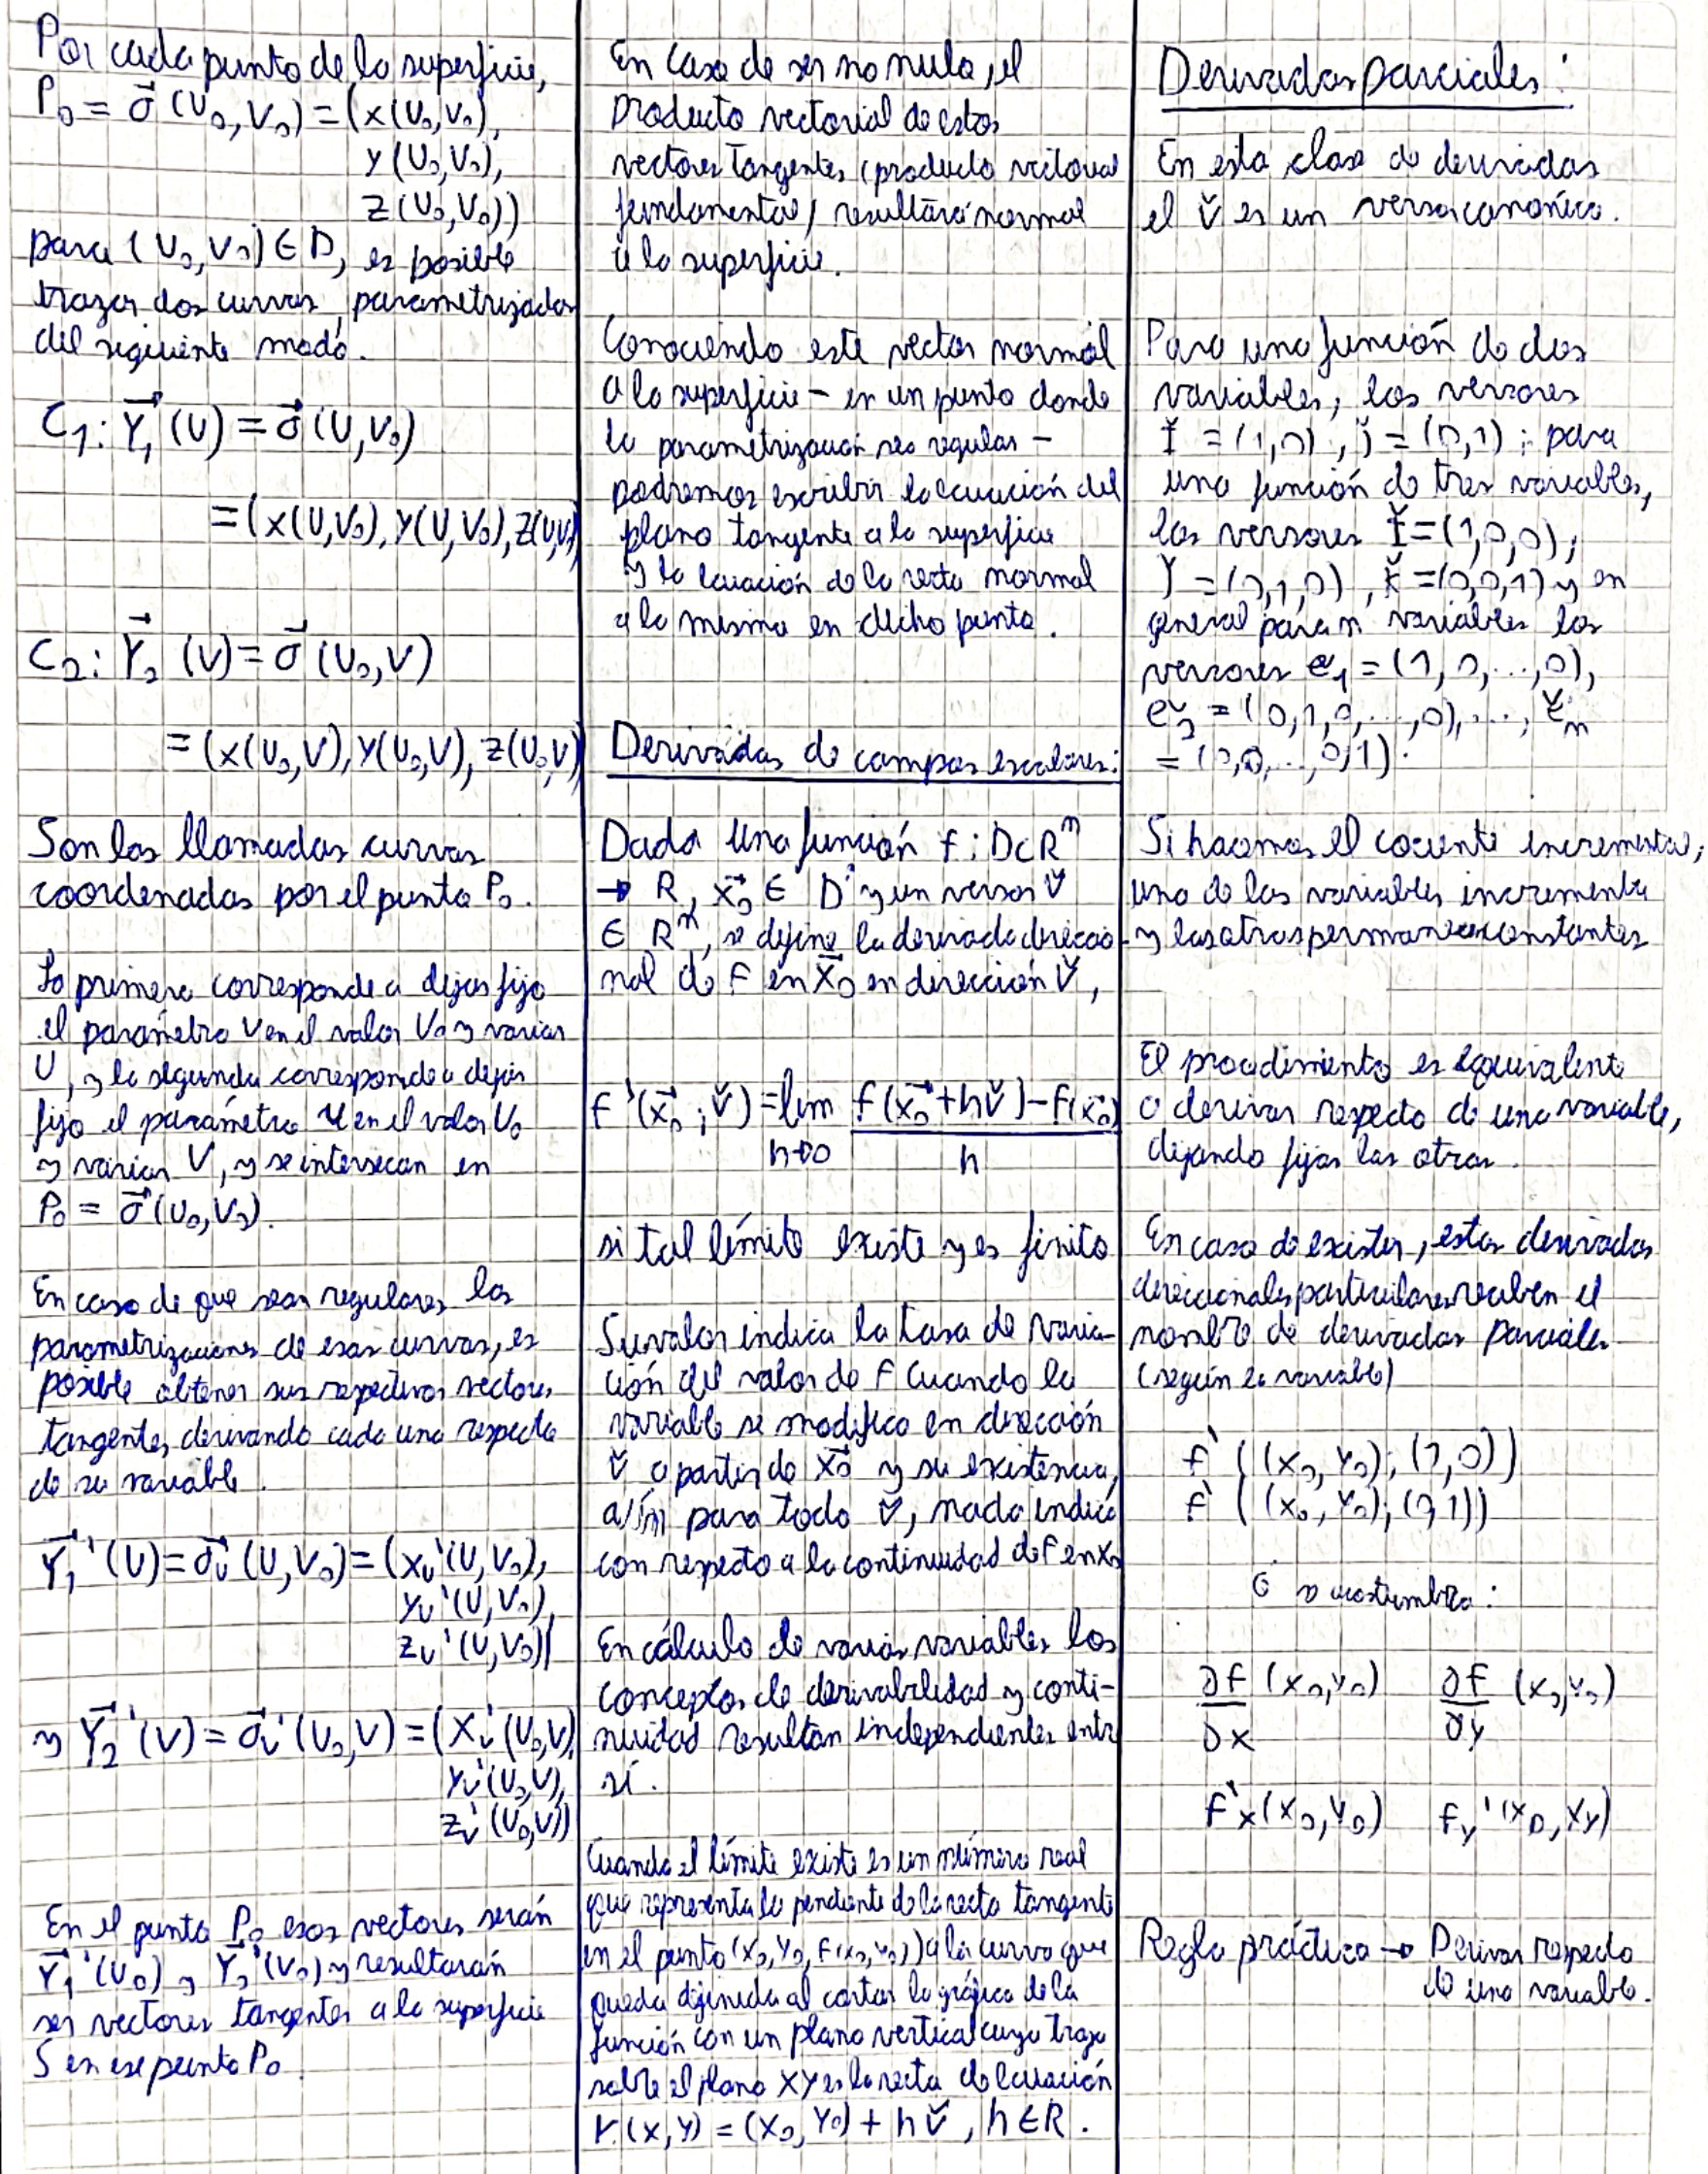 Por cada punto de la superficie,
P₀ = σ⃗ (U₀, V₀) = (x(U₀,V₀),
y(U₀,V₀),
z(U₀,V₀))
para (U₀,V₀) ∈ D, es posible
trazar dos curvas, parametrizadas
del siguiente modo.
C₁: γ⃗₁(U) = σ⃗(U,V₀)
= (x(U,V₀), y(U,V₀), z(U,V₀)
C₂: γ⃗₂ (V) = σ⃗ (U₀,V)
= (x(U₀,V), y(U₀,V), z(U₀,V)
Son las llamadas curvas
coordenadas por el punto P₀.
La primera corresponde a dejar fijo
el parámetro V en el valor V₀ y variar
U, y la segunda corresponde a dejar
fijo el parámetro U en el valor U₀
y variar V, y se intersecan en
P₀ = σ⃗(U₀,V₀).
En caso de que sean regulares las
parametrizaciones de esas curvas, es
posible obtener sus respectivos vectores
tangentes, derivando cada una respecto
de su variable.
γ⃗₁'(U) = σ⃗ᵤ'(U,V₀) = (xᵤ'(U,V₀),
yᵤ'(U,V₀),
zᵤ'(U,V₀))
y γ⃗₂'(V) = σ⃗ᵥ'(U₀,V) = (xᵥ'(U₀,V),
yᵥ'(U₀,V),
zᵥ'(U₀,V))
En el punto P₀ esos vectores serán
γ⃗₁'(U₀) y γ⃗₂'(V₀) y resultarán
ser vectores tangentes a la superficie
S en ese punto P₀.
En caso de ser no nulo, el
producto vectorial de estos
vectores tangentes (producto vectorial
fundamental) resultará normal
a la superficie.
Conociendo este vector normal
a la superficie – en un punto donde
la parametrización sea regular –
podremos escribir la ecuación del
plano tangente a la superficie
y la ecuación de la recta normal
a la misma en dicho punto.
Derivadas de campos escalares:
Dada una función f: D⊂Rⁿ
→ R, x⃗₀ ∈ D y un versor v̌
∈ Rⁿ, se define la derivada direccio-
nal de F en x⃗₀ en dirección v̌,
f'(x⃗₀; v̌) = lim f(x⃗₀+hv̌)-f(x⃗₀)
h→0 h
si tal límite existe y es finito
Su valor indica la tasa de varia-
ción del valor de F cuando la
variable se modifica en dirección
v̌ a partir de x⃗₀ y su existencia,
aún para todo v̌, nada indica
con respecto a la continuidad de F en x₀
En cálculo de varias variables los
conceptos de derivabilidad y conti-
nuidad resultan independientes entre
sí.
Cuando el límite existe es un número real
que representa la pendiente de la recta tangente
en el punto (x₀, y₀, f(x₀,y₀)) a la curva que
queda definida al cortar la gráfica de la
función con un plano vertical cuya traza
sobre el plano XY es la recta de ecuación
r(x,y) = (x₀, y₀) + h v̌, h ∈ R.
Derivadas parciales:
En esta clase de derivadas
el v̌ es un versor canónico.
Para una función de dos
variables, los versores
ǐ = (1,0), ǰ = (0,1); para
una función de tres variables,
los versores ǐ = (1,0,0);
ǰ = (0,1,0), ǩ = (0,0,1) y en
general para n variables los
versores e₁ = (1,0,...,0),
ě₂ = (0,1,0,...,0),..., ěₙ
= (0,0,...,0,1).
Si hacemos el cociente incremental,
una de las variables incrementa
y las otras permanecen constantes
El procedimiento es equivalente
a derivar respecto de una variable,
dejando fijas las otras.
En caso de existir, estas derivadas
direccionales particulares reciben el
nombre de derivadas parciales
(según la variable)
f'((x₀,y₀);(1,0))
f'((x₀,y₀);(0,1))
ó se acostumbra:
∂f (x₀,y₀) ∂f (x₀,y₀)
∂x ∂y
f'x(x₀,y₀) fy'(x₀,xy)
Regla práctica → Derivar respecto
de una variable.